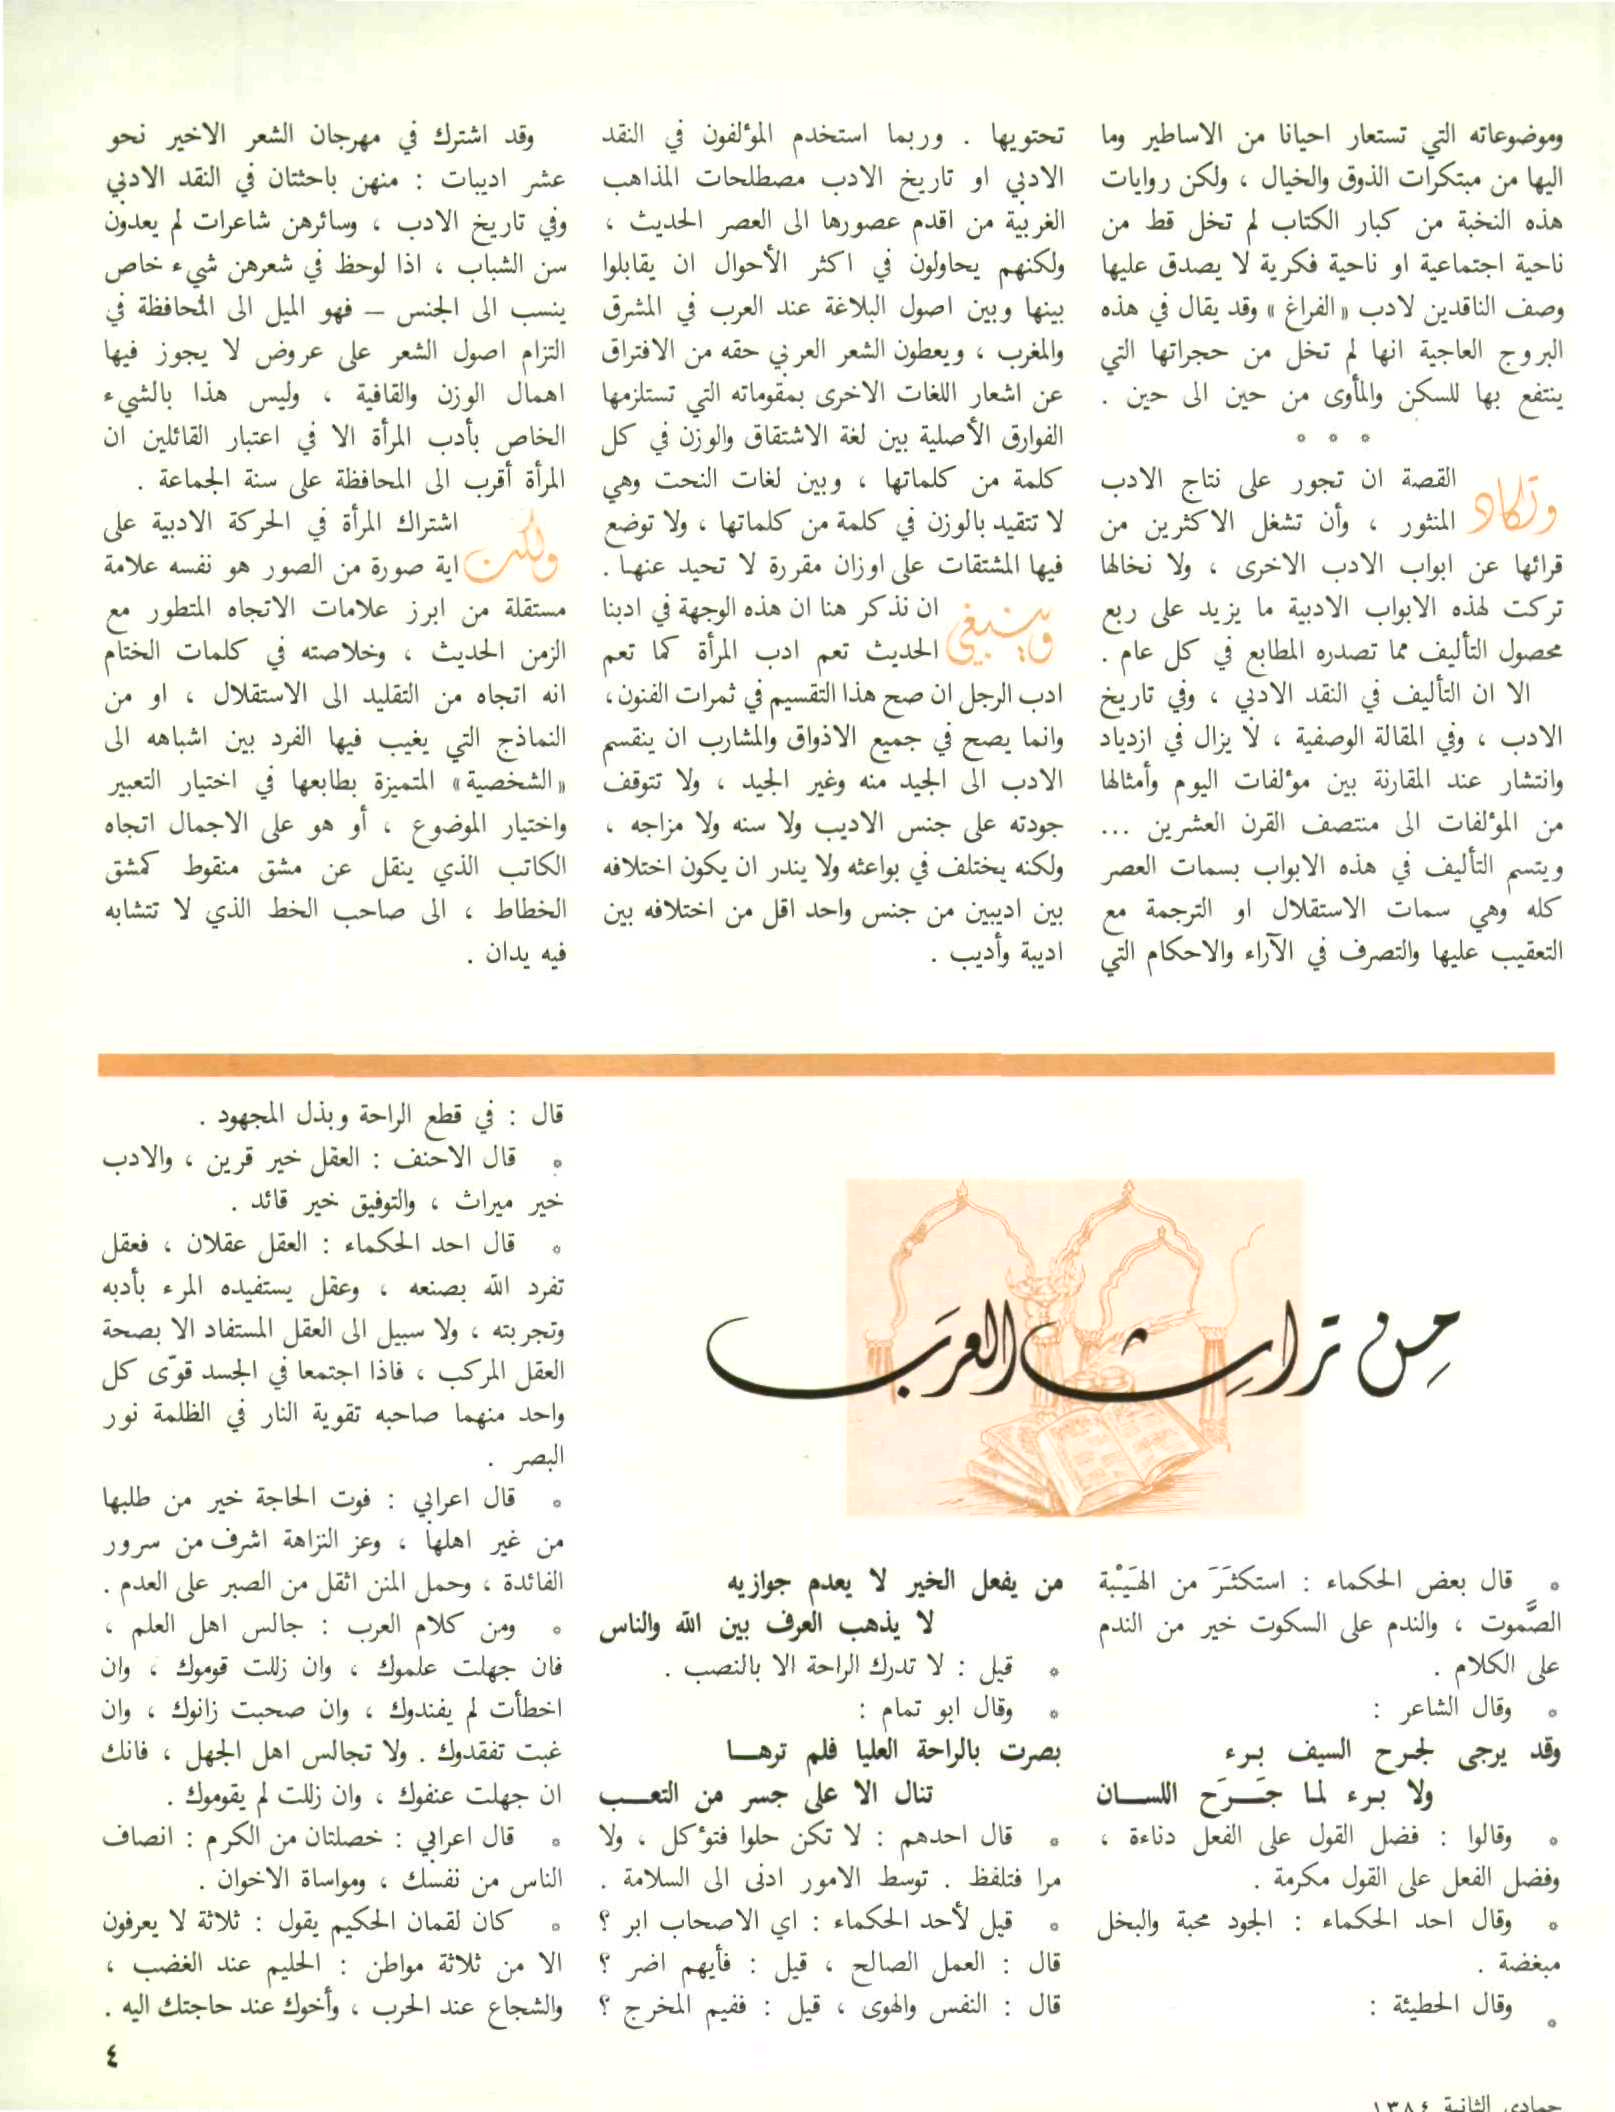 وموضوعاته التي تستعار احيانا من الاساطير وما
اليها من مبتكرات الذوق والخيال ، ولكن روايات
هذه النخبة من كبار الكتاب لم تخل قط من
ناحية اجتماعية او ناحية فكرية لا يصدق عليها
وصف الناقدين لادب «الفراغ» وقد يقال في هذه
البروج العاجية انها لم تخل من حجراتها التي
ينتفع بها للسكن والمأوى من حين الى حين .
* * *
وتكاد القصة ان تجور على نتاج الادب
المنثور ، وأن تشغل الاكثرين من
قرائها عن ابواب الادب الاخرى ، ولا نخالها
تركت لهذه الابواب الادبية ما يزيد على ربع
محصول التأليف مما تصدره المطابع في كل عام .
الا ان التأليف في النقد الادبي ، وفي تاريخ
الادب ، وفي المقالة الوصفية ، لا يزال في ازدياد
وانتشار عند المقارنة بين مؤلفات اليوم وأمثالها
من المؤلفات الى منتصف القرن العشرين ...
ويتسم التأليف في هذه الابواب بسمات العصر
كله وهي سمات الاستقلال او الترجمة مع
التعقيب عليها والتصرف في الآراء والاحكام التي
تحتويها . وربما استخدم المؤلفون في النقد
الادبي او تاريخ الادب مصطلحات المذاهب
الغربية من اقدم عصورها الى العصر الحديث ،
ولكنهم يحاولون في اكثر الأحوال ان يقابلوا
بينها وبين اصول البلاغة عند العرب في المشرق
والمغرب ، ويعطون الشعر العربي حقه من الافتراق
عن اشعار اللغات الاخرى بمقوماته التي تستلزمها
الفوارق الأصلية بين لغة الاشتقاق والوزن في كل
كلمة من كلماتها ، وبين لغات النحت وهي
لا تتقيد بالوزن في كلمة من كلماتها ، ولا توضع
فيها المشتقات على اوزان مقررة لا تحيد عنها .
وينبغي ان نذكر هنا ان هذه الوجهة في ادبنا
الحديث تعم ادب المرأة كما تعم
ادب الرجل ان صح هذا التقسيم في ثمرات الفنون،
وانما يصح في جميع الاذواق والمشارب ان ينقسم
الادب الى الجيد منه وغير الجيد ، ولا تتوقف
جودته على جنس الاديب ولا سنه ولا مزاجه ،
ولكنه يختلف في بواعثه ولا يندر ان يكون اختلافه
بين اديبين من جنس واحد اقل من اختلافه بين
اديبة وأديب .
وقد اشترك في مهرجان الشعر الاخير نحو
عشر اديبات : منهن باحثتان في النقد الادبي
وفي تاريخ الادب ، وسائرهن شاعرات لم يعدون
سن الشباب ، اذا لوحظ في شعرهن شيء خاص
ينسب الى الجنس – فهو الميل الى المحافظة في
التزام اصول الشعر على عروض لا يجوز فيها
اهمال الوزن والقافية ، وليس هذا بالشيء
الخاص بأدب المرأة الا في اعتبار القائلين ان
المرأة أقرب الى المحافظة على سنة الجماعة .
ولكن اشتراك المرأة في الحركة الادبية على
اية صورة من الصور هو نفسه علامة
مستقلة من ابرز علامات الاتجاه المتطور مع
الزمن الحديث ، وخلاصته في كلمات الختام
انه اتجاه من التقليد الى الاستقلال ، او من
النماذج التي يغيب فيها الفرد بين اشباهه الى
«الشخصية» المتميزة بطابعها في اختيار التعبير
واختيار الموضوع ، أو هو على الاجمال اتجاه
الكاتب الذي ينقل عن مشق منقوط كمشق
الخطاط ، الى صاحب الخط الذي لا تتشابه
فيه يدان .
من تراث العرب
* قال بعض الحكماء : استكثَرَ من الهَيْبة
الصَّموت ، والندم على السكوت خير من الندم
على الكلام .
* وقال الشاعر :
وقد يرجى لجرح السيف برء
ولا برء لما جَرَحَ اللسان
* وقالوا : فضل القول على الفعل دناءة ،
وفضل الفعل على القول مكرمة .
* وقال احد الحكماء : الجود محبة والبخل
مبغضة .
* وقال الحطيئة :
من يفعل الخير لا يعدم جوازيه
لا يذهب العرف بين الله والناس
* قيل : لا تدرك الراحة الا بالنصب .
* وقال ابو تمام :
بصرت بالراحة العليا فلم ترها
تنال الا على جسر من التعب
* قال احدهم : لا تكن حلوا فتؤكل ، ولا
مرا فتلفظ . توسط الامور ادنى الى السلامة .
* قيل لأحد الحكماء : اي الاصحاب ابر ؟
قال : العمل الصالح ، قيل : فأيهم اضر ؟
قال : النفس والهوى ، قيل : ففيم المخرج ؟
قال : في قطع الراحة وبذل المجهود .
* قال الاحنف : العقل خير قرين ، والادب
خير ميراث ، والتوفيق خير قائد .
* قال احد الحكماء : العقل عقلان ، فعقل
تفرد الله بصنعه ، وعقل يستفيده المرء بأدبه
وتجربته ، ولا سبيل الى العقل المستفاد الا بصحة
العقل المركب ، فاذا اجتمعا في الجسد قوّى كل
واحد منهما صاحبه تقوية النار في الظلمة نور
البصر .
* قال اعرابي : فوت الحاجة خير من طلبها
من غير اهلها ، وعز النزاهة اشرف من سرور
الفائدة ، وحمل المنن اثقل من الصبر على العدم .
* ومن كلام العرب : جالس اهل العلم ،
فان جهلت علموك ، وان زللت قوموك ، وان
اخطأت لم يفندوك ، وان صحبت زانوك ، وان
غبت تفقدوك . ولا تجالس اهل الجهل ، فانك
ان جهلت عنفوك ، وان زللت لم يقوموك .
* قال اعرابي : خصلتان من الكرم : انصاف
الناس من نفسك ، ومواساة الاخوان .
* كان لقمان الحكيم يقول : ثلاثة لا يعرفون
الا من ثلاثة مواطن : الحليم عند الغضب ،
والشجاع عند الحرب ، وأخوك عند حاجتك اليه .
٤
جمادى الثانية ١٣٨٤